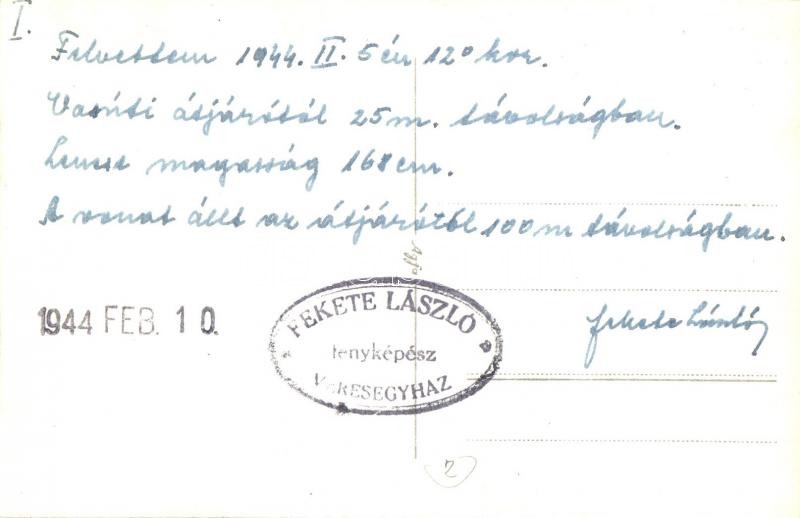 I.
Felvettem 1944. II. 5 én 12° kor.
Vasúti átjárótól 25 m. távolságban.
Lencse magasság 168 cm.
A vonat állt az átjárótól 100 m távolságban.
1944 FEB. 10.
FEKETE LÁSZLÓ
fényképész
VERESEGYHÁZ
Fekete László
2